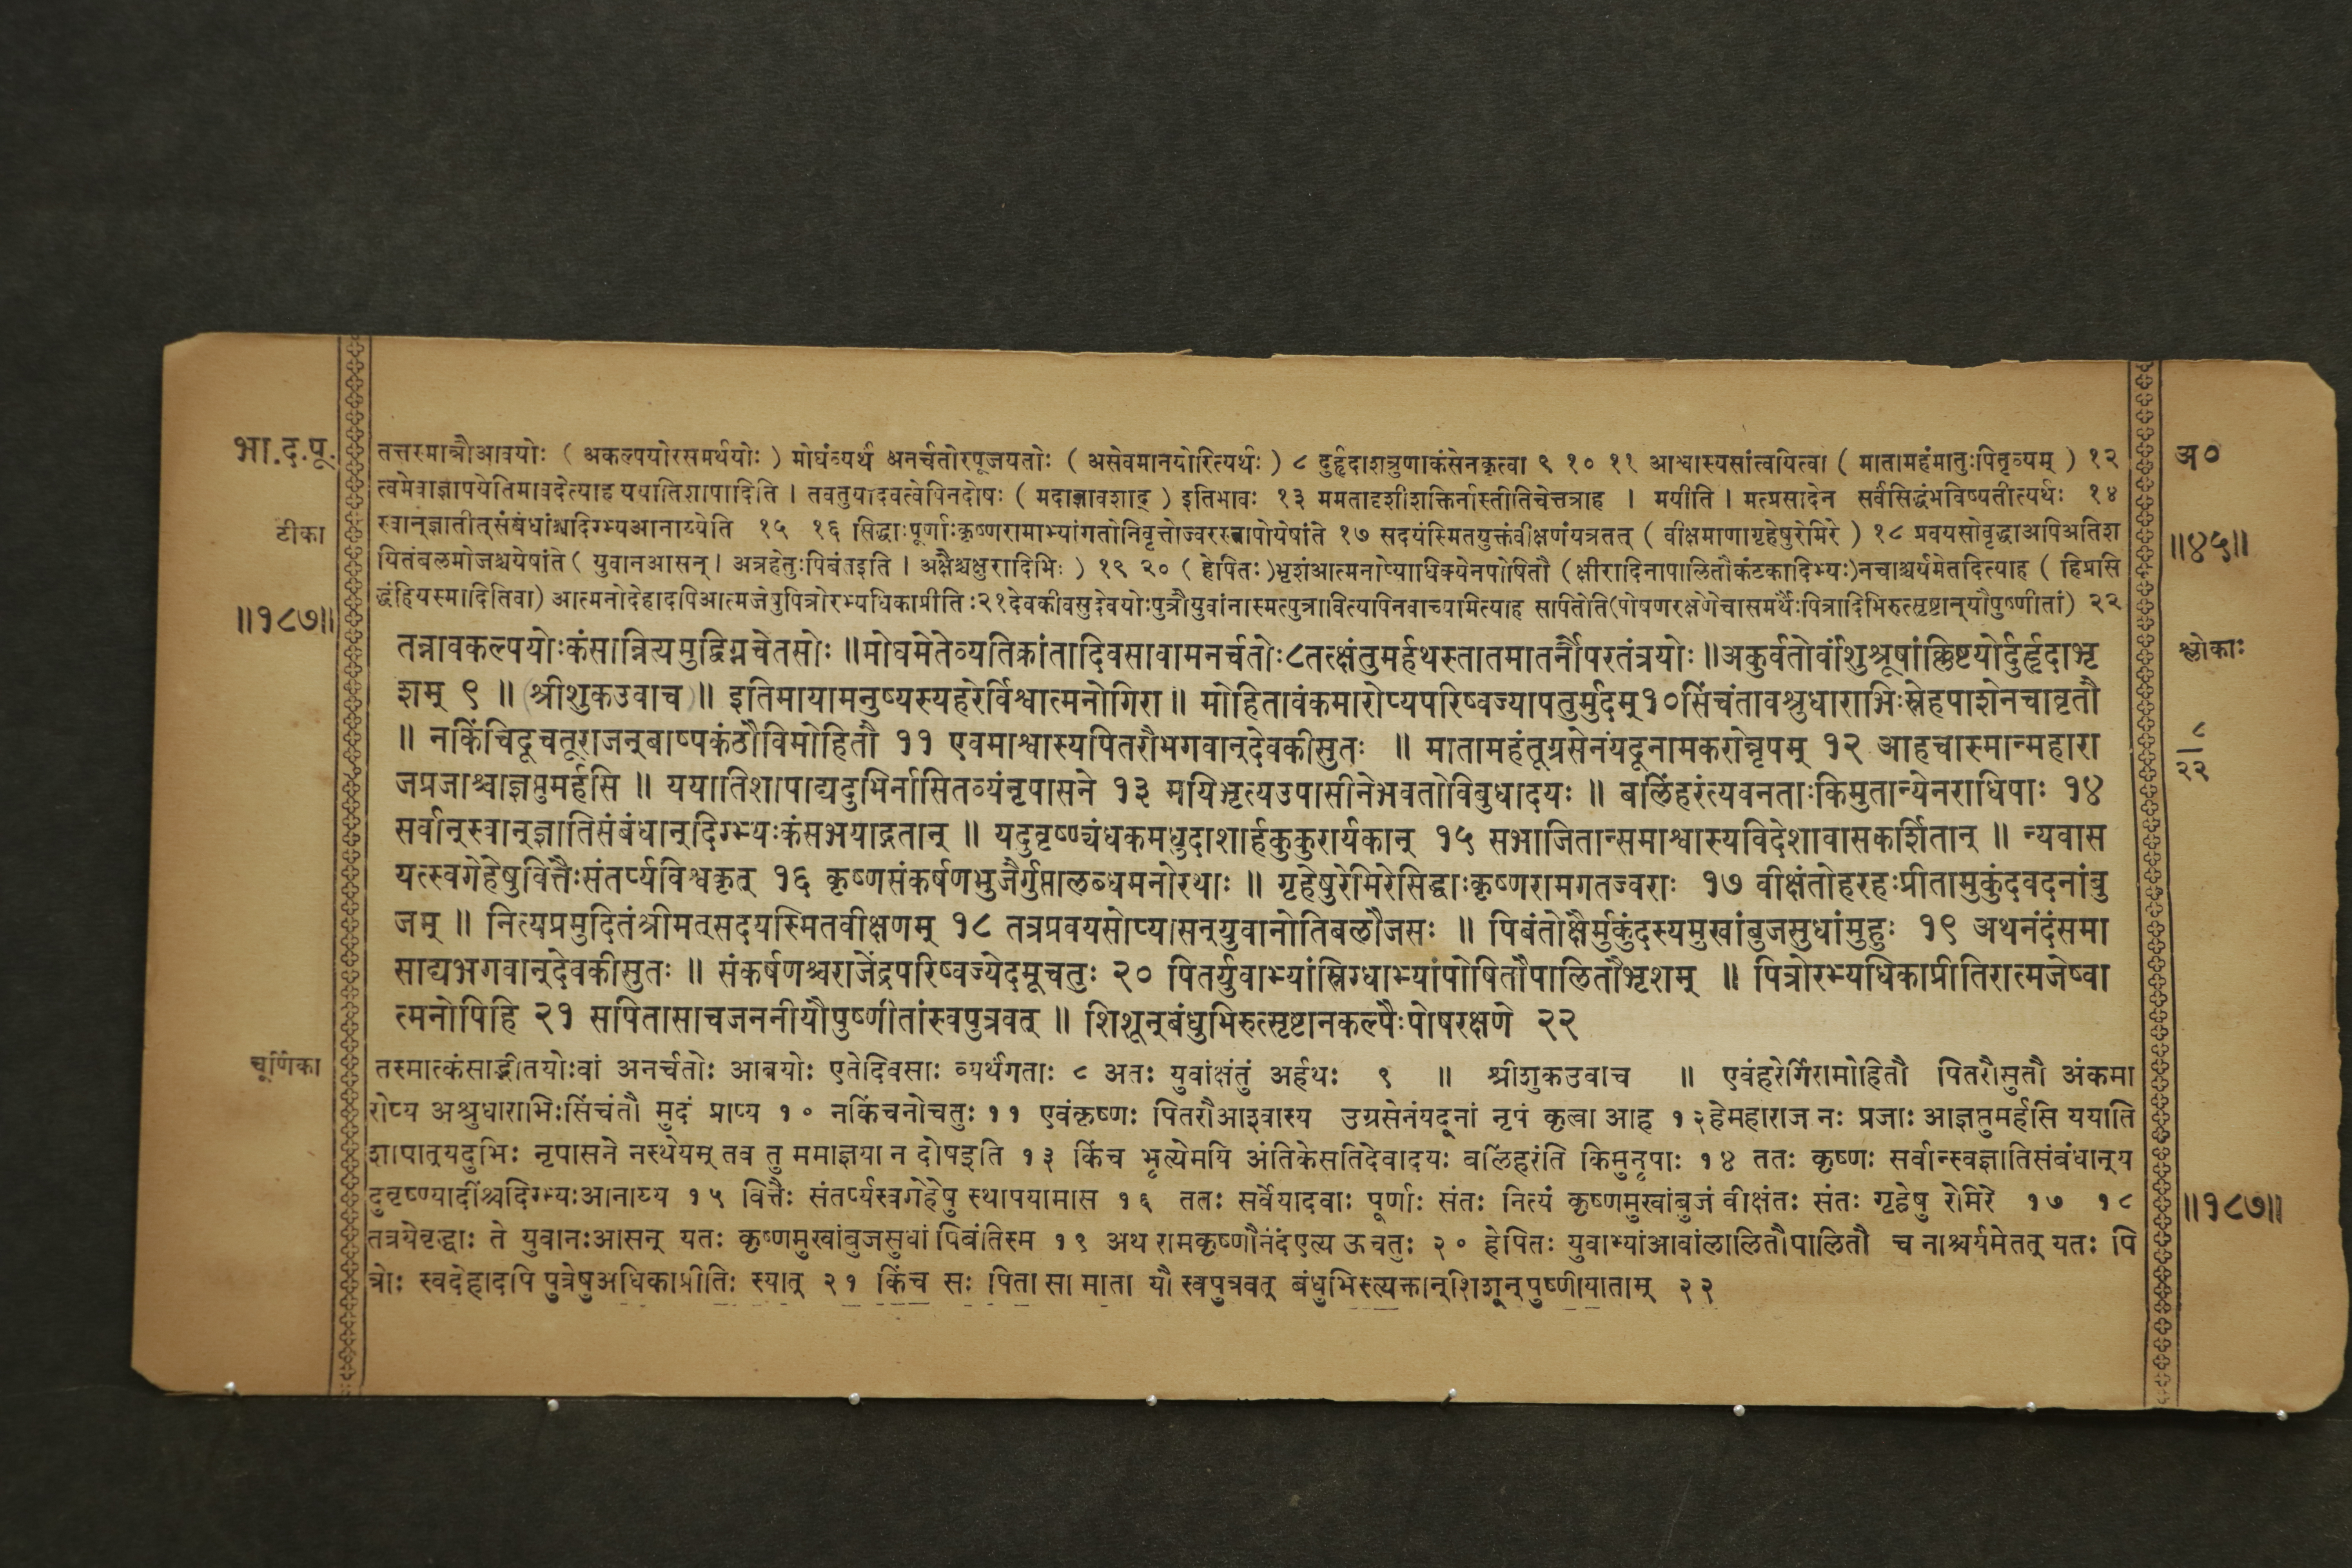 भा.द.पू.
तत्तस्मान्नौआवयोः ( अकल्पयोरसमर्थयोः ) मोघंव्यर्थ अनर्चतोरपूजयतोः ( असेवमानयोरित्यर्थः ) ८ दुर्हृदाशत्रुणाकंसेनकृत्वा ९ १० ११ आश्वास्यसांत्वयित्वा ( मातामहंमातुःपितृव्यम् ) १२
अ०
त्वमेवाज्ञापयेतिमावदेत्याह ययातिशापादिति । तवतुयादवत्वेपिनदोषः ( मदाज्ञावशाद् ) इतिभावः १३ ममतादृशीशक्तिर्नास्तीतिचेत्तत्राह । मयीति । मत्प्रसादेन सर्वंसिद्धंभविष्यतीत्यर्थः १४
टीका
स्वान्ज्ञातीत्संबंधांश्चदिग्भ्यआनाय्येति १५ १६ सिद्धाःपूर्णाःकृष्णरामाभ्यांगतोनिवृत्तोज्वरस्तापोयेषांते १७ सदयंस्मितयुक्तंवीक्षणंयत्रतत् ( वीक्षमाणागृहेषुरेमिरे ) १८ प्रवयसोवृद्धाअपिअतिश
॥४५॥
यितंबलमोजश्चयेषांते ( युवानआसन् । अत्रहेतुःपिबंतइति । अक्षैश्चक्षुरादिभिः ) १९ २० ( हेपितः )भृशंआत्मनोप्याधिक्येनपोषितौ ( क्षीरादिनापालितौकंटकादिभ्यः)नचाश्चर्यमेतदित्याह ( हिप्रसि
द्धंहियस्मादितिवा) आत्मनोदेहादपिआत्मजेषुपित्रोरभ्यधिकाप्रीतिः२१देवकीवसुदेवयोःपुत्रौयुवांनास्मत्पुत्रावित्यापिनवाच्यामित्याह सापितेति(पोषणरक्षणेचासमर्थैःपित्रादिभिरुत्सृष्टान्यौपुष्णीतां) २२
॥१८७॥
तन्नावकल्पयोःकंसान्नित्यमुद्विग्नचेतसोः ॥मोघमेतेव्यतिक्रांतादिवसावामनर्चतोः८तत्क्षंतुमर्हथस्तातमातर्नौपरतंत्रयोः ॥अकुर्वतोर्वांशुश्रूषांक्लिष्टयोर्दुर्हृदाभृ
श्लोकाः
शम् ९ ॥ (श्रीशुकउवाच) ॥ इतिमायामनुष्यस्यहरेर्विश्वात्मनोगिरा ॥ मोहितावंकमारोप्यपरिष्वज्यापतुर्मुदम्१०सिंचंतावश्रुधाराभिःस्नेहपाशेनचावृतौ
॥ नकिंचिदूचतूराजन्बाष्पकंठौविमोहितौ ११ एवमाश्वास्यपितरौभगवान्देवकीसुतः ॥ मातामहंतूग्रसेनंयदूनामकरोन्नृपम् १२ आहचास्मान्महारा
८
२२
जप्रजाश्चाज्ञप्तुमर्हसि ॥ ययातिशापाद्यदुभिर्नासितव्यंनृपासने १३ मयिभृत्यउपासीनेभवतोविबुधादयः ॥ बलिंहरंत्यवनताःकिमुतान्येनराधिपाः १४
सर्वान्स्वान्ज्ञातिसंबंधान्दिग्भ्यःकंसभयाद्गतान् ॥ यदुवृष्ण्यंधकमधुदाशार्हकुकुरार्यकान् १५ सभाजितान्समाश्वास्यविदेशावासकर्शितान् ॥ न्यवास
यत्स्वगेहेषुवित्तैःसंतर्प्यविश्वकृत् १६ कृष्णसंकर्षणभुजैर्गुप्तालब्धमनोरथाः ॥ गृहेषुरेमिरेसिद्धाःकृष्णरामगतज्वराः १७ वीक्षंतोहरहःप्रीतामुकुंदवदनांबु
जम् ॥ नित्यप्रमुदितंश्रीमत्सदयस्मितवीक्षणम् १८ तत्रप्रवयसोप्यासन्युवानोतिबलौजसः ॥ पिबंतोक्षैर्मुकुंदस्यमुखांबुजसुधांमुहुः १९ अथनंदंसमा
साद्यभगवान्देवकीसुतः ॥ संकर्षणश्चराजेंद्रपरिष्वज्येदमूचतुः २० पितर्युवाभ्यांस्निग्धाभ्यांपोषितौपालितौभृशम् ॥ पित्रोरभ्यधिकाप्रीतिरात्मजेष्वा
त्मनोपिहि २१ सपितासाचजननीयौपुष्णीतांस्वपुत्रवत् ॥ शिशून्बंधुभिरुत्सृष्टानकल्पैःपोषरक्षणे २२
चूर्णिका
तस्मात्कंसाद्भीतयोःवां अनर्चतोः आवयोः एतेदिवसाः व्यर्थंगताः ८ अतः युवांक्षंतुं अर्हथः ९ ॥ श्रीशुकउवाच ॥ एवंहरेर्गिरामोहितौ पितरौसुतौ अंकमा
रोप्य अश्रुधाराभिःसिंचंतौ मुदं प्राप्य १० नकिंचनोचतुः ११ एवंकृष्णः पितरौआश्वास्य उग्रसेनंयदूनां नृपं कृत्वा आह १२हेमहाराज नः प्रजाः आज्ञप्तुमर्हसि ययाति
शापात्यदुभिः नृपासने नस्थेयम् तव तु ममाज्ञया न दोषइति १३ किंच भृत्येमयि अंतिकेसतिदेवादयः बलिंहरंति किमुनृपाः १४ ततः कृष्णः सर्वान्स्वज्ञातिसंबंधान्य
दुवृष्ण्यादींश्चदिग्भ्यःआनाय्य १५ वित्तैः संतर्प्यस्वगेहेषु स्थापयामास १६ ततः सर्वेयादवाः पूर्णाः संतः नित्यं कृष्णमुखांबुजं वीक्षंतः संतः गृहेषु रेमिरे १७ १८
॥१८७॥
तत्रयेवृद्धाः ते युवानःआसन् यतः कृष्णमुखांबुजसुधां पिबंतिस्म १९ अथ रामकृष्णौनंदंएत्य ऊचतुः २० हेपितः युवाभ्यांआवांलालितौपालितौ च नाश्चर्यमेतत् यतः पि
त्रोः स्वदेहादपि पुत्रेषुअधिकाप्रीतिः स्यात् २१ किंच सः पिता सा माता यौ स्वपुत्रवत् बंधुभिस्त्यक्तान्शिशून्पुष्णीयाताम् २२